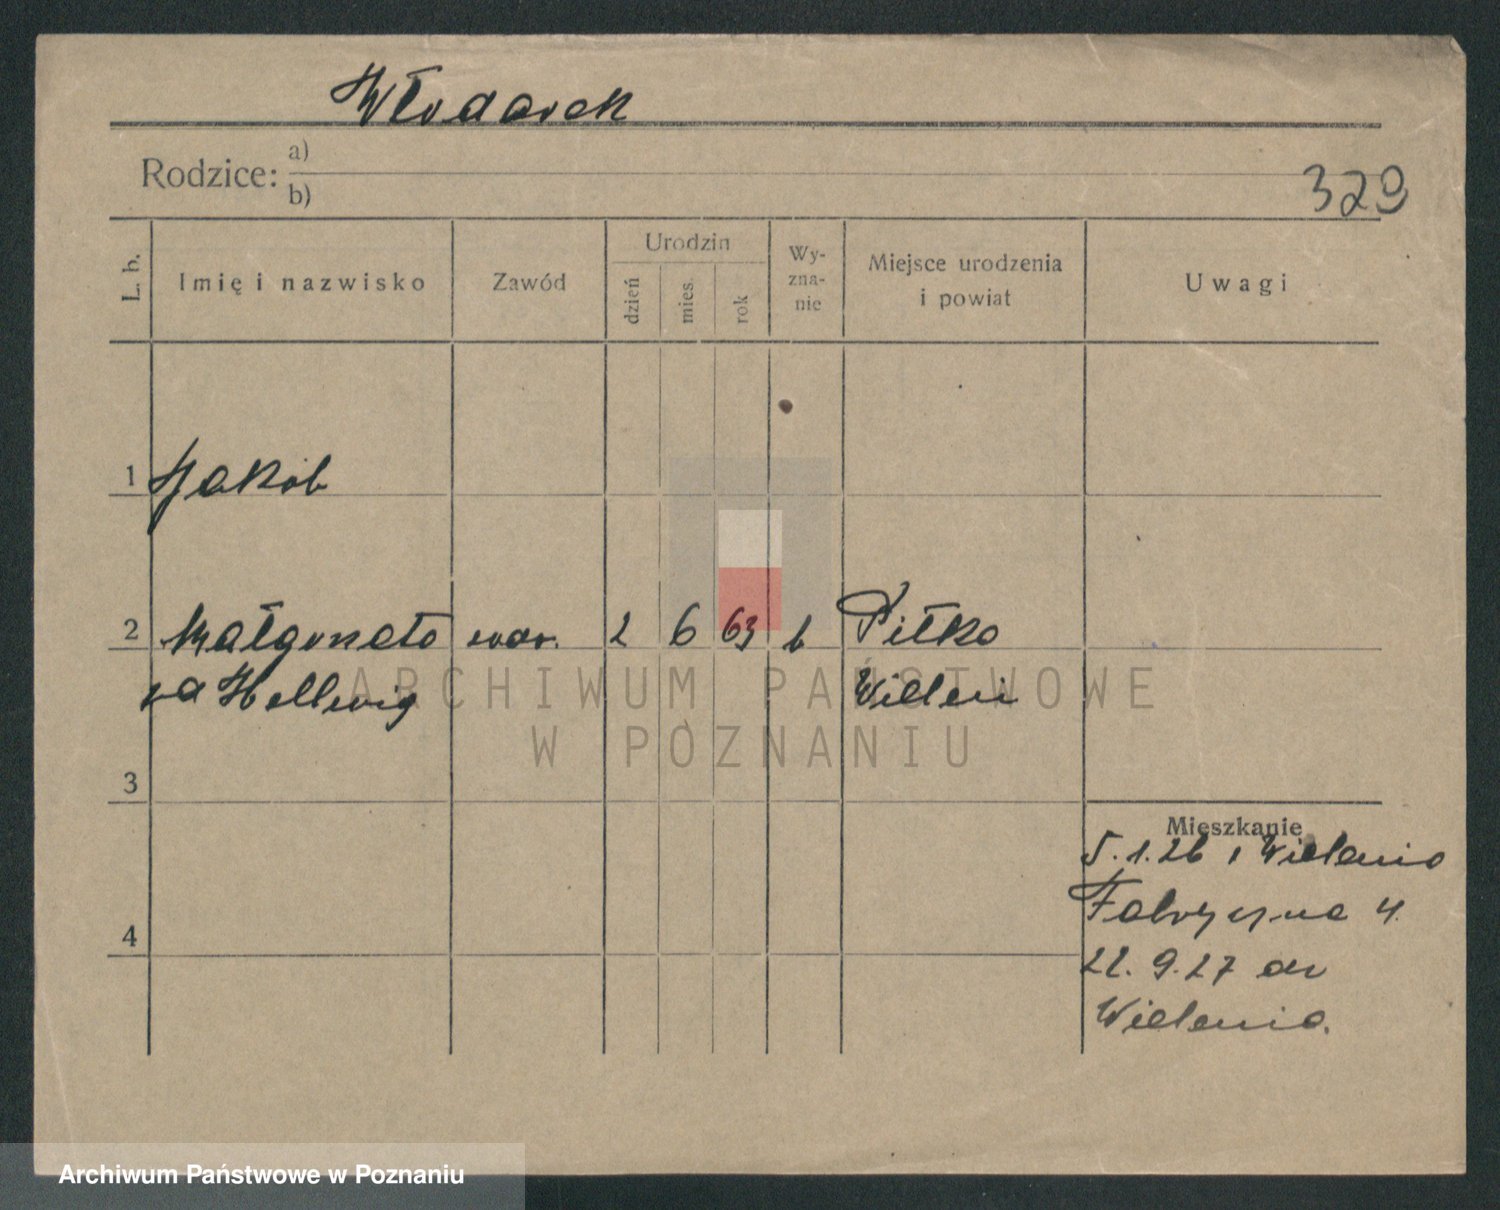 Włodarek
Rodzice: a)
b)
329
L. b.
Imię i nazwisko
Zawód
Urodzin
dzień
mies.
rok
Wy-
zna-
nie
Miejsce urodzenia
i powiat
Uwagi
1 Jakób
2 Małgorzata wdw. 2 6 63 k Piłka
Hellwig Wieleń
3
4
Mieszkanie
5.1.26 z Wielenia
Fabryczna 4.
22.9.27 do
Wielenia.
ARCHIWUM PAŃSTWOWE
W POZNANIU
Archiwum Państwowe w Poznaniu